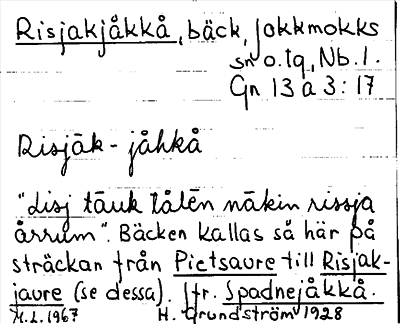 Risjakjåkkå, bäck, Jokkmokks
sn o. tg, Nb. l.
Gn 13 a 3:17
Risjāk-jåhkå
"Lisj tāuk tålēn nākin rissja
årrum". Bäcken kallas så här på
sträckan från Pietsaure till Risjak-
jaure (se dessa). Jfr. Spadnejåkkå.
M.L. 1967 H. Grundström 1928